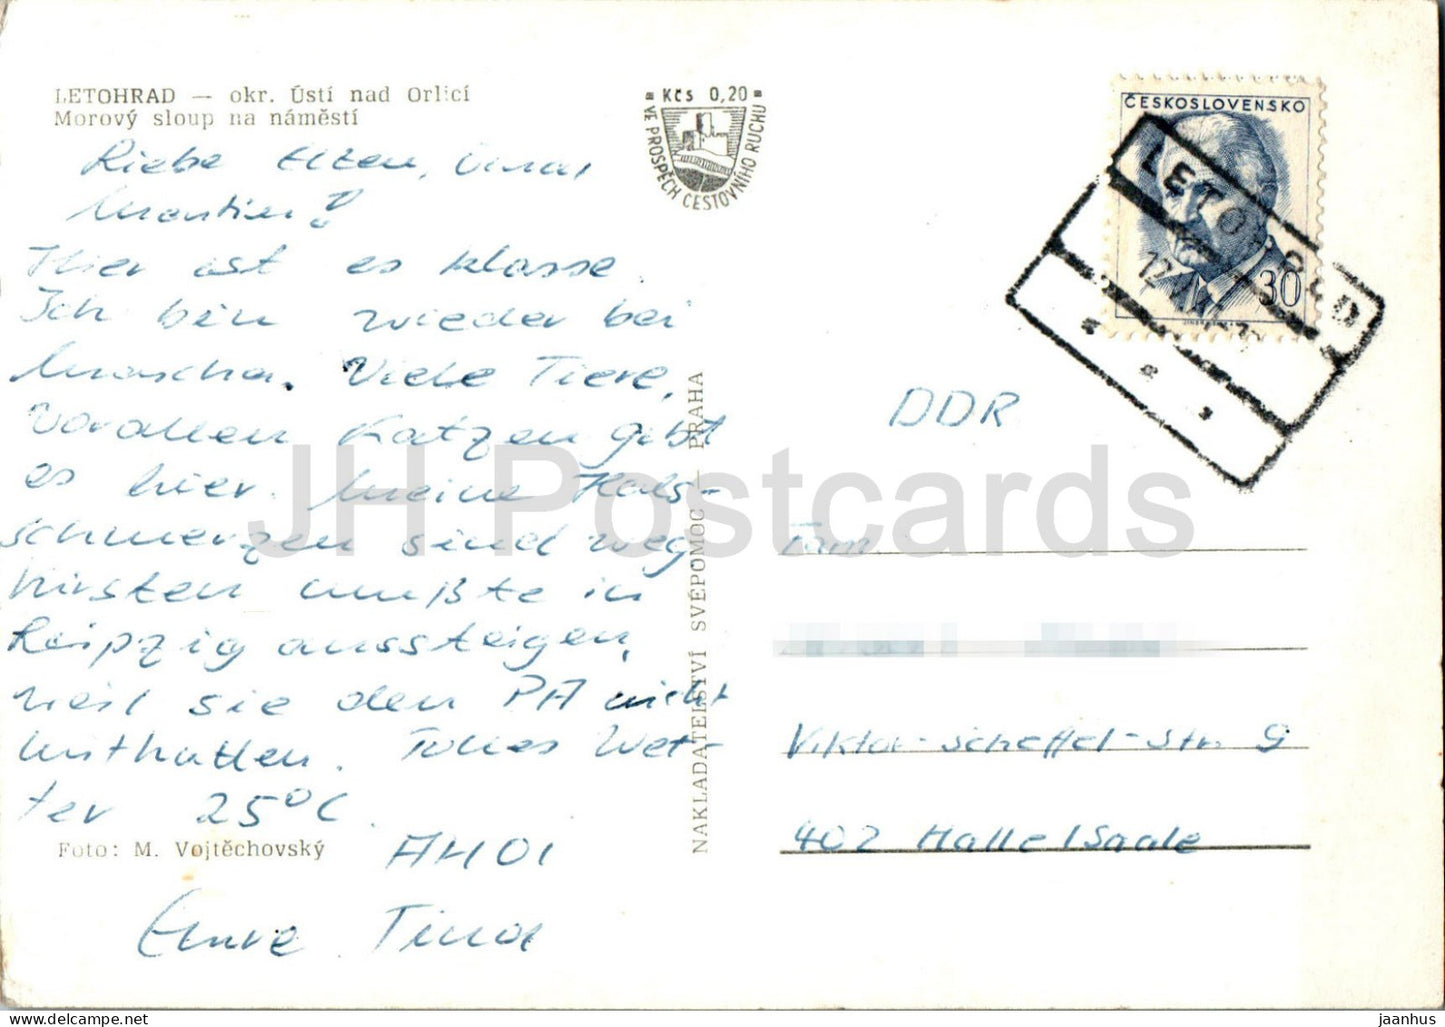 LETOHRAD — okr. Ústí nad Orlicí
Morový sloup na náměstí
Liebe Eltern, Oma,
Martin!
Hier ist es klasse.
Ich bin wieder bei
Mascha. Viele Tiere,
vorallen Katzen gibt
es hier. Meine Hals-
schmerzen sind weg
Kirsten mußte in
Leipzig aussteigen,
weil sie den PA nicht
mithatten. Tolles Wet-
ter 25°C.
AHOI
Eure Tina
Foto: M. Vojtěchovský
Kčs 0,20
VE PROSPĚCH CESTOVNÍHO RUCHU
NAKLADATELSTVÍ SVÉPOMOC — PRAHA
ČESKOSLOVENSKO
30
LETOHRAD
DDR
Fam
Viktor-Scheffel-Str. 9
402 Halle/Saale
JH Postcards
jaanhus https://www.delcampe.net